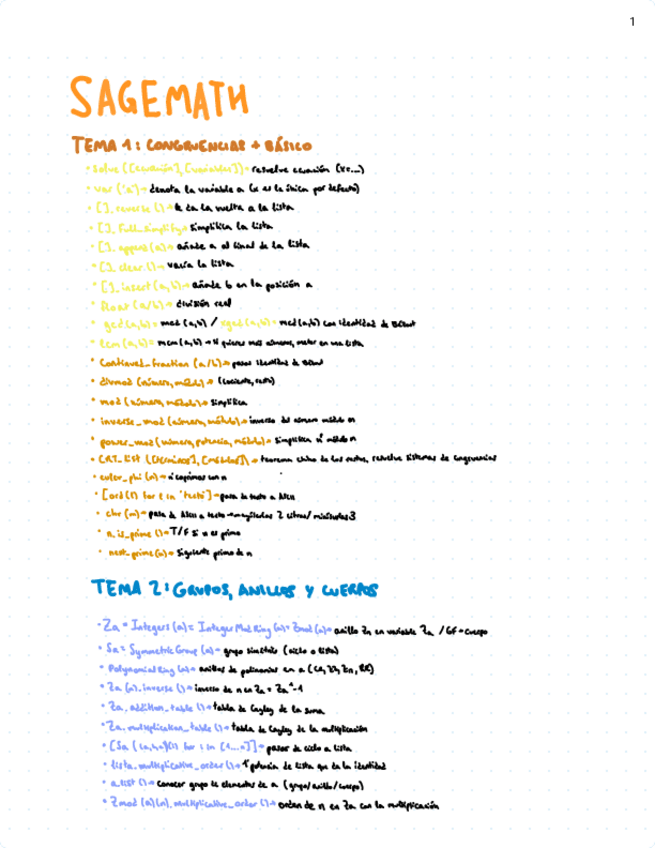 1
SAGEMATH
TEMA 1: CONGRUENCIAS + BÁSICO
• solve ([ecuación], [variables]) → resuelve ecuación (x=...)
• var ('a') → denota la variable a (x es la única por defecto)
• [].reverse () → le da la vuelta a la lista
• [].full_simplify → simplifica la lista
• [].append(a) → añade a al final de la lista
• [].clear () → vacía la lista
• [].insert (a,b) → añade b en la posición a
• float (a/b) → división real
• gcd(a,b) = mcd (a,b) / xgcd(a,b) = mcd(a,b) con identidad de Bézout
• lcm (a,b) = mcm (a,b) → si quieres más números, meter en una lista
• continued_fraction (a/b) → pasos identidad de Bézout
• divmod (número, módulo) → (cociente, resto)
• mod (número, módulo) → simplifica
• inverse_mod (número, módulo) → inverso del número módulo n
• power_mod (número, potencia, módulo) → simplifica nº módulo n
• CRT_list ([términos], [módulos]) → teorema chino de los restos, resuelve sistemas de congruencias
• euler_phi (n) → nº coprimos con n
• [ord(t) for t in 'texto'] → pasa de texto a ASCII
• chr (m) → pasa de ASCII a texto → mayúsculas 2 cifras/ minúsculas 3
• n.is_prime () → T/F si n es primo
• next_prime (n) → siguiente primo de n
TEMA 2: GRUPOS, ANILLOS Y CUERPOS
• Zn = Integers (n) = IntegerModRing (n) = Zmod (n) → anillo Zn en variable Zn / GF → cuerpo
• Sn = SymmetricGroup (n) → grupo simétrico (ciclo o lista)
• PolynomialRing (a) → anillos de polinomios en a (QQ, ZZ, Zn, RR)
• Zn (n).inverse () → inverso de n en Zn = Zn^-1
• Zn.addition_table () → tabla de Cayley de la suma
• Zn.multiplication_table () → tabla de Cayley de la multiplicación
• [Sn ((a,b,c))(i) for i in [1...n]] → pasar de ciclo a lista
• lista.multiplicative_order () → 1ª potencia de lista que da la identidad
• a.list () → conocer grupo de elementos de a (grupo/anillo/cuerpo)
• Zmod (a)(n).multiplicative_order () → orden de n en Za con la multiplicación